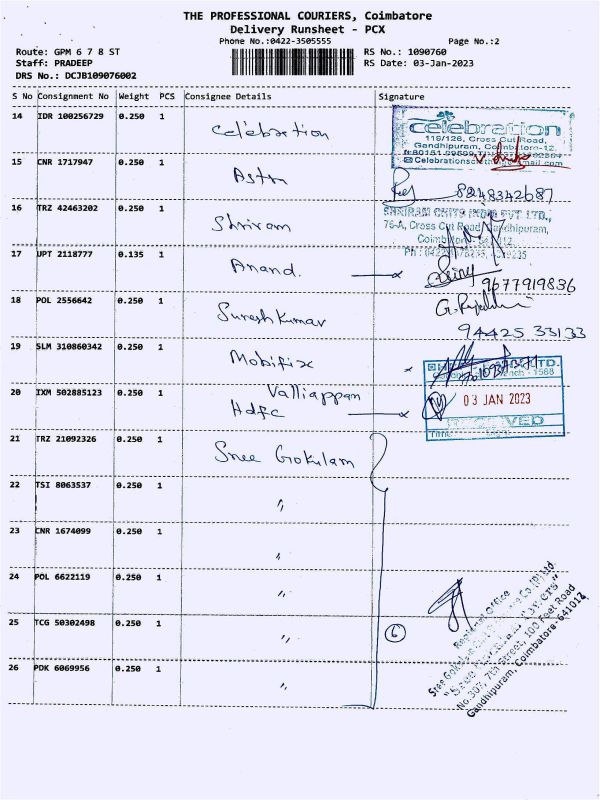 THE PROFESSIONAL COURIERS, Coimbatore
Delivery Runsheet - PCX
Phone No.:0422-3505555
Page No.:2
Route: GPM 6 7 8 ST
RS No.: 1090760
Staff: PRADEEP
RS Date: 03-Jan-2023
DRS No.: DCJB109076002
S No Consignment No Weight PCS Consignee Details Signature
14 IDR 100256729 0.250 1 Celebration
celebration
119/126, Cross Cut Road,
Gandhipuram, Coimbatore-12.
15 CNR 1717947 0.250 1 Astra
8248342687
16 TRZ 42463202 0.250 1 Shriram
SHRIRAM CHITS INDIA PVT LTD.,
76-A, Cross Cut Road, Gandhipuram,
17 UPT 2118777 0.135 1 Anand.
9677919836
18 POL 2556642 0.250 1 Suresh Kumar
94425 33133
19 SLM 310860342 0.250 1 Mobifix
20 IXM 502885123 0.250 1 Valliappan
Hdfc
03 JAN 2023
RECEIVED
21 TRZ 21092326 0.250 1 Sree Gokulam
22 TSI 8063537 0.250 1 "
23 CNR 1674099 0.250 1 "
24 POL 6622119 0.250 1 "
25 TCG 50302498 0.250 1 "
6
26 PDK 6069956 0.250 1 "
Regional Office
No.307, 7th Street, 100 Feet Road
Gandhipuram, Coimbatore-641012